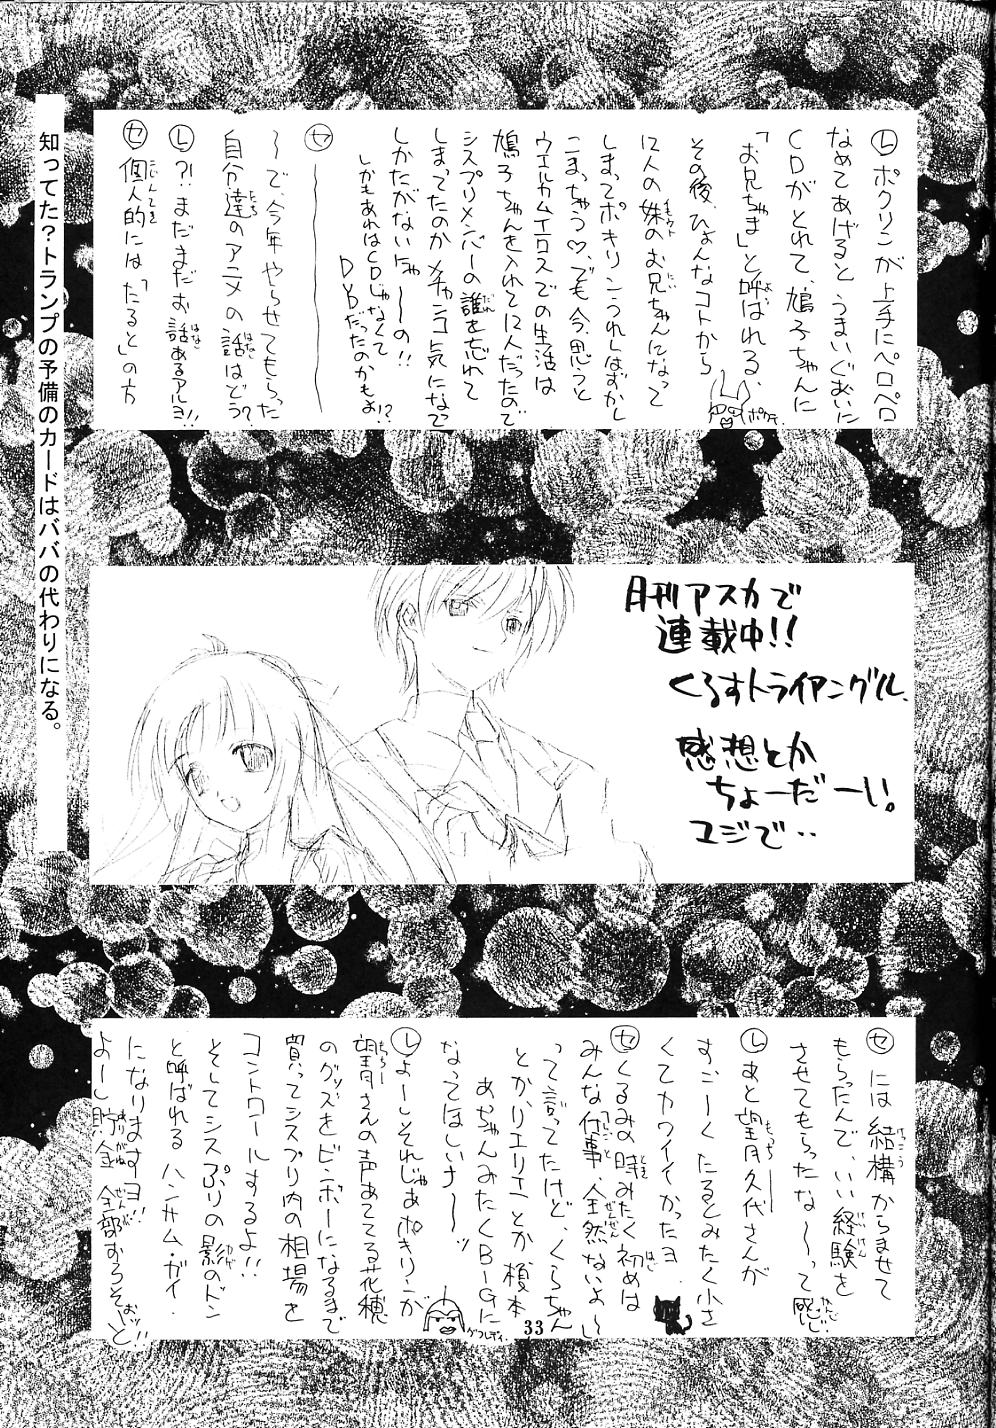 Ⓛポクリンが上手にペロペロ
なめてあげるとうまいぐあいに
CDがとれて、鳩子ちゃんに
「お兄ちゃま」と呼ばれる、
その後、ひょんなコトから
12人の妹のお兄ちゃんになって
しまってポキリンうれしはずかし
こまっちゃう♡、でも今、思うと
ウエルカムイエクスでの生活は
鳩子ちゃんを入れて12人だったので
シスプリメンバーの誰を忘れて
しまったのかメチャンコ気になって
しかたがないにゃ〜の!!
しかもあれはCDじゃなくて
DVDだったのかもよ!?
ポクテ
㋝
〜で、今年やらせてもらった
自分達のアニメの話はどう?
Ⓛ?!まだまだお話あるアルヨ!!
㋝個人的には「たると」の方
知ってた?トランプの予備のカードはババの代わりになる。
月刊アスカで
連載中!!
くるすトライアングル、
感想とか
ちょーだーい。
ユジで‥
㋝には結構からませて
もらったんで、いい経験を
させてもらったな〜って感じ
Ⓛあと望月久代さんが
すごーくたるとみたく小さ
くてカワイイかったヨ
㋝くるみの時みたく初めは
みんな仕事、全然ないよ〜
って言ってたけど、くらちゃん
とか、リエリエとか、榎本
あちゃんみたくBIGに
なってほしいナ〜ッ
Ⓛよーしそれじゃあポキリンが
望月さんの声あててる花穂
のグッズをビンボーになるまで
買ってシスプリ内の相場を
コントロールするよ!!
そしてシスプリの影のドン
と呼ばれるハンサム・ガイ
になりますヨ!!
よーし貯金全部おろそっと
33